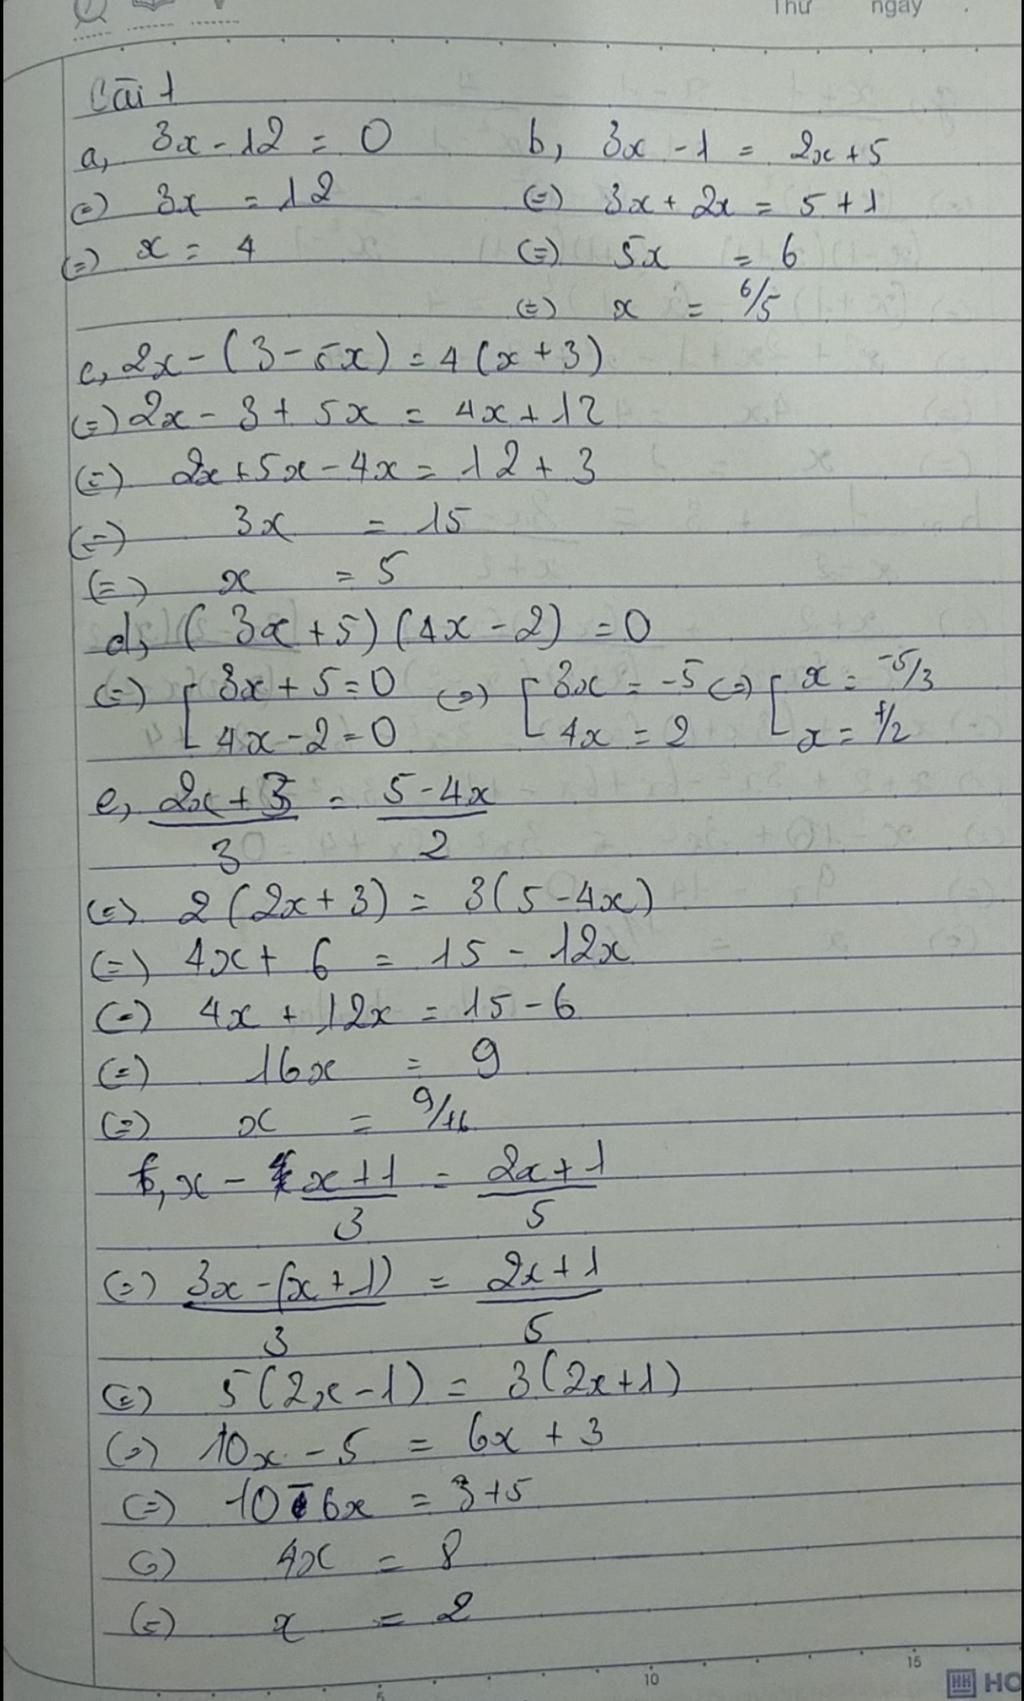 Thứ ngày
Câu 1
a, 3x - 12 = 0
(=) 3x = 12
(=) x = 4
b, 3x - 1 = 2x + 5
(=) 3x + 2x = 5 + 1
(=) 5x = 6
(=) x = 6/5
c, 2x - (3 - 5x) = 4(x + 3)
(=) 2x - 3 + 5x = 4x + 12
(=) 2x + 5x - 4x = 12 + 3
(=) 3x = 15
(=) x = 5
d, (3x + 5)(4x - 2) = 0
(=) [ 3x + 5 = 0 (=) [ 3x = -5 (=) [ x = -5/3
4x - 2 = 0 4x = 2 x = 1/2
e, (2x + 3)/3 = (5 - 4x)/2
(=) 2(2x + 3) = 3(5 - 4x)
(=) 4x + 6 = 15 - 12x
(=) 4x + 12x = 15 - 6
(=) 16x = 9
(=) x = 9/16
f, x - (x + 1)/3 = (2x + 1)/5
(=) (3x - (x + 1))/3 = (2x + 1)/5
(=) 5(2x - 1) = 3(2x + 1)
(=) 10x - 5 = 6x + 3
(=) 10 - 6x = 3 + 5
(=) 4x = 8
(=) x = 2
5 10 15
HH HO